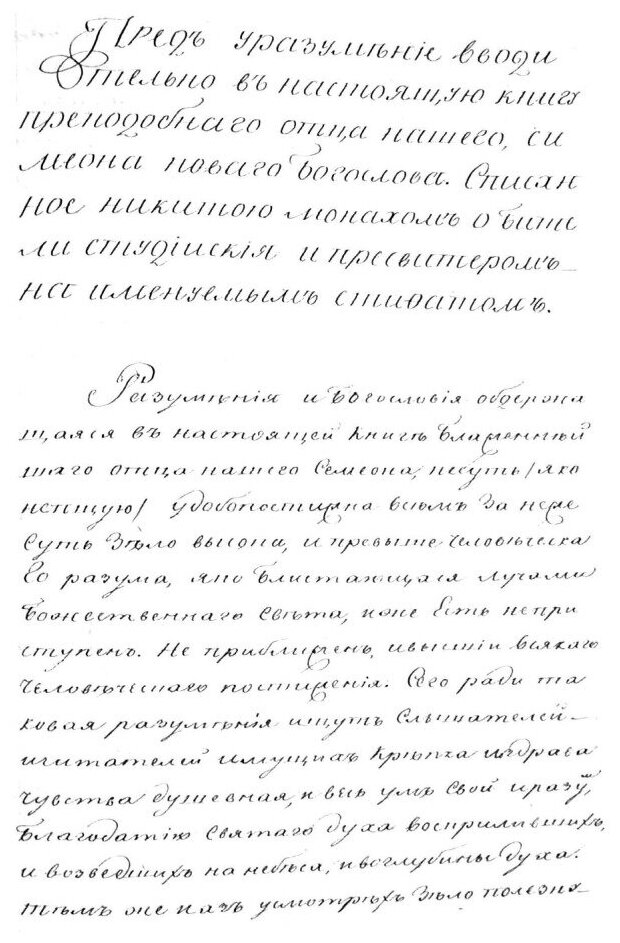 Предъ уразумѣніе вводи
тельно въ настоящую книгу
преподобнаго отца нашего, си
меона новаго богослова. Списан
ное никитою монахомъ обите
ли студійскія и пресвитеромъ
на именуемымъ стифатомъ.
Разумѣнія и богословія обдержа
щаяся въ настоящей книгѣ блаженнѣй
шаго отца нашего Семеона, несуть /яко
непщую/ удобопостижна всѣмъ за неже
суть зѣло высока, и превыше человѣческа
го разума, яко блистающаяся лучами
божественнаго свѣта, иже есть непри
ступенъ. Не приближенъ, ивышшіи всякаго
человѣческаго постиженія. Сего ради та
ковая разумѣнія ищутъ слышателей
ичитателей имущихъ крѣпка издрава
чувства душевная, и весь умъ свой иразу,
благодатію святаго духа воспріявшихъ,
и возведшихъ на небеса, ивоглубины духа.
тѣмъ же и азъ усмотрѣхъ зѣло полезна